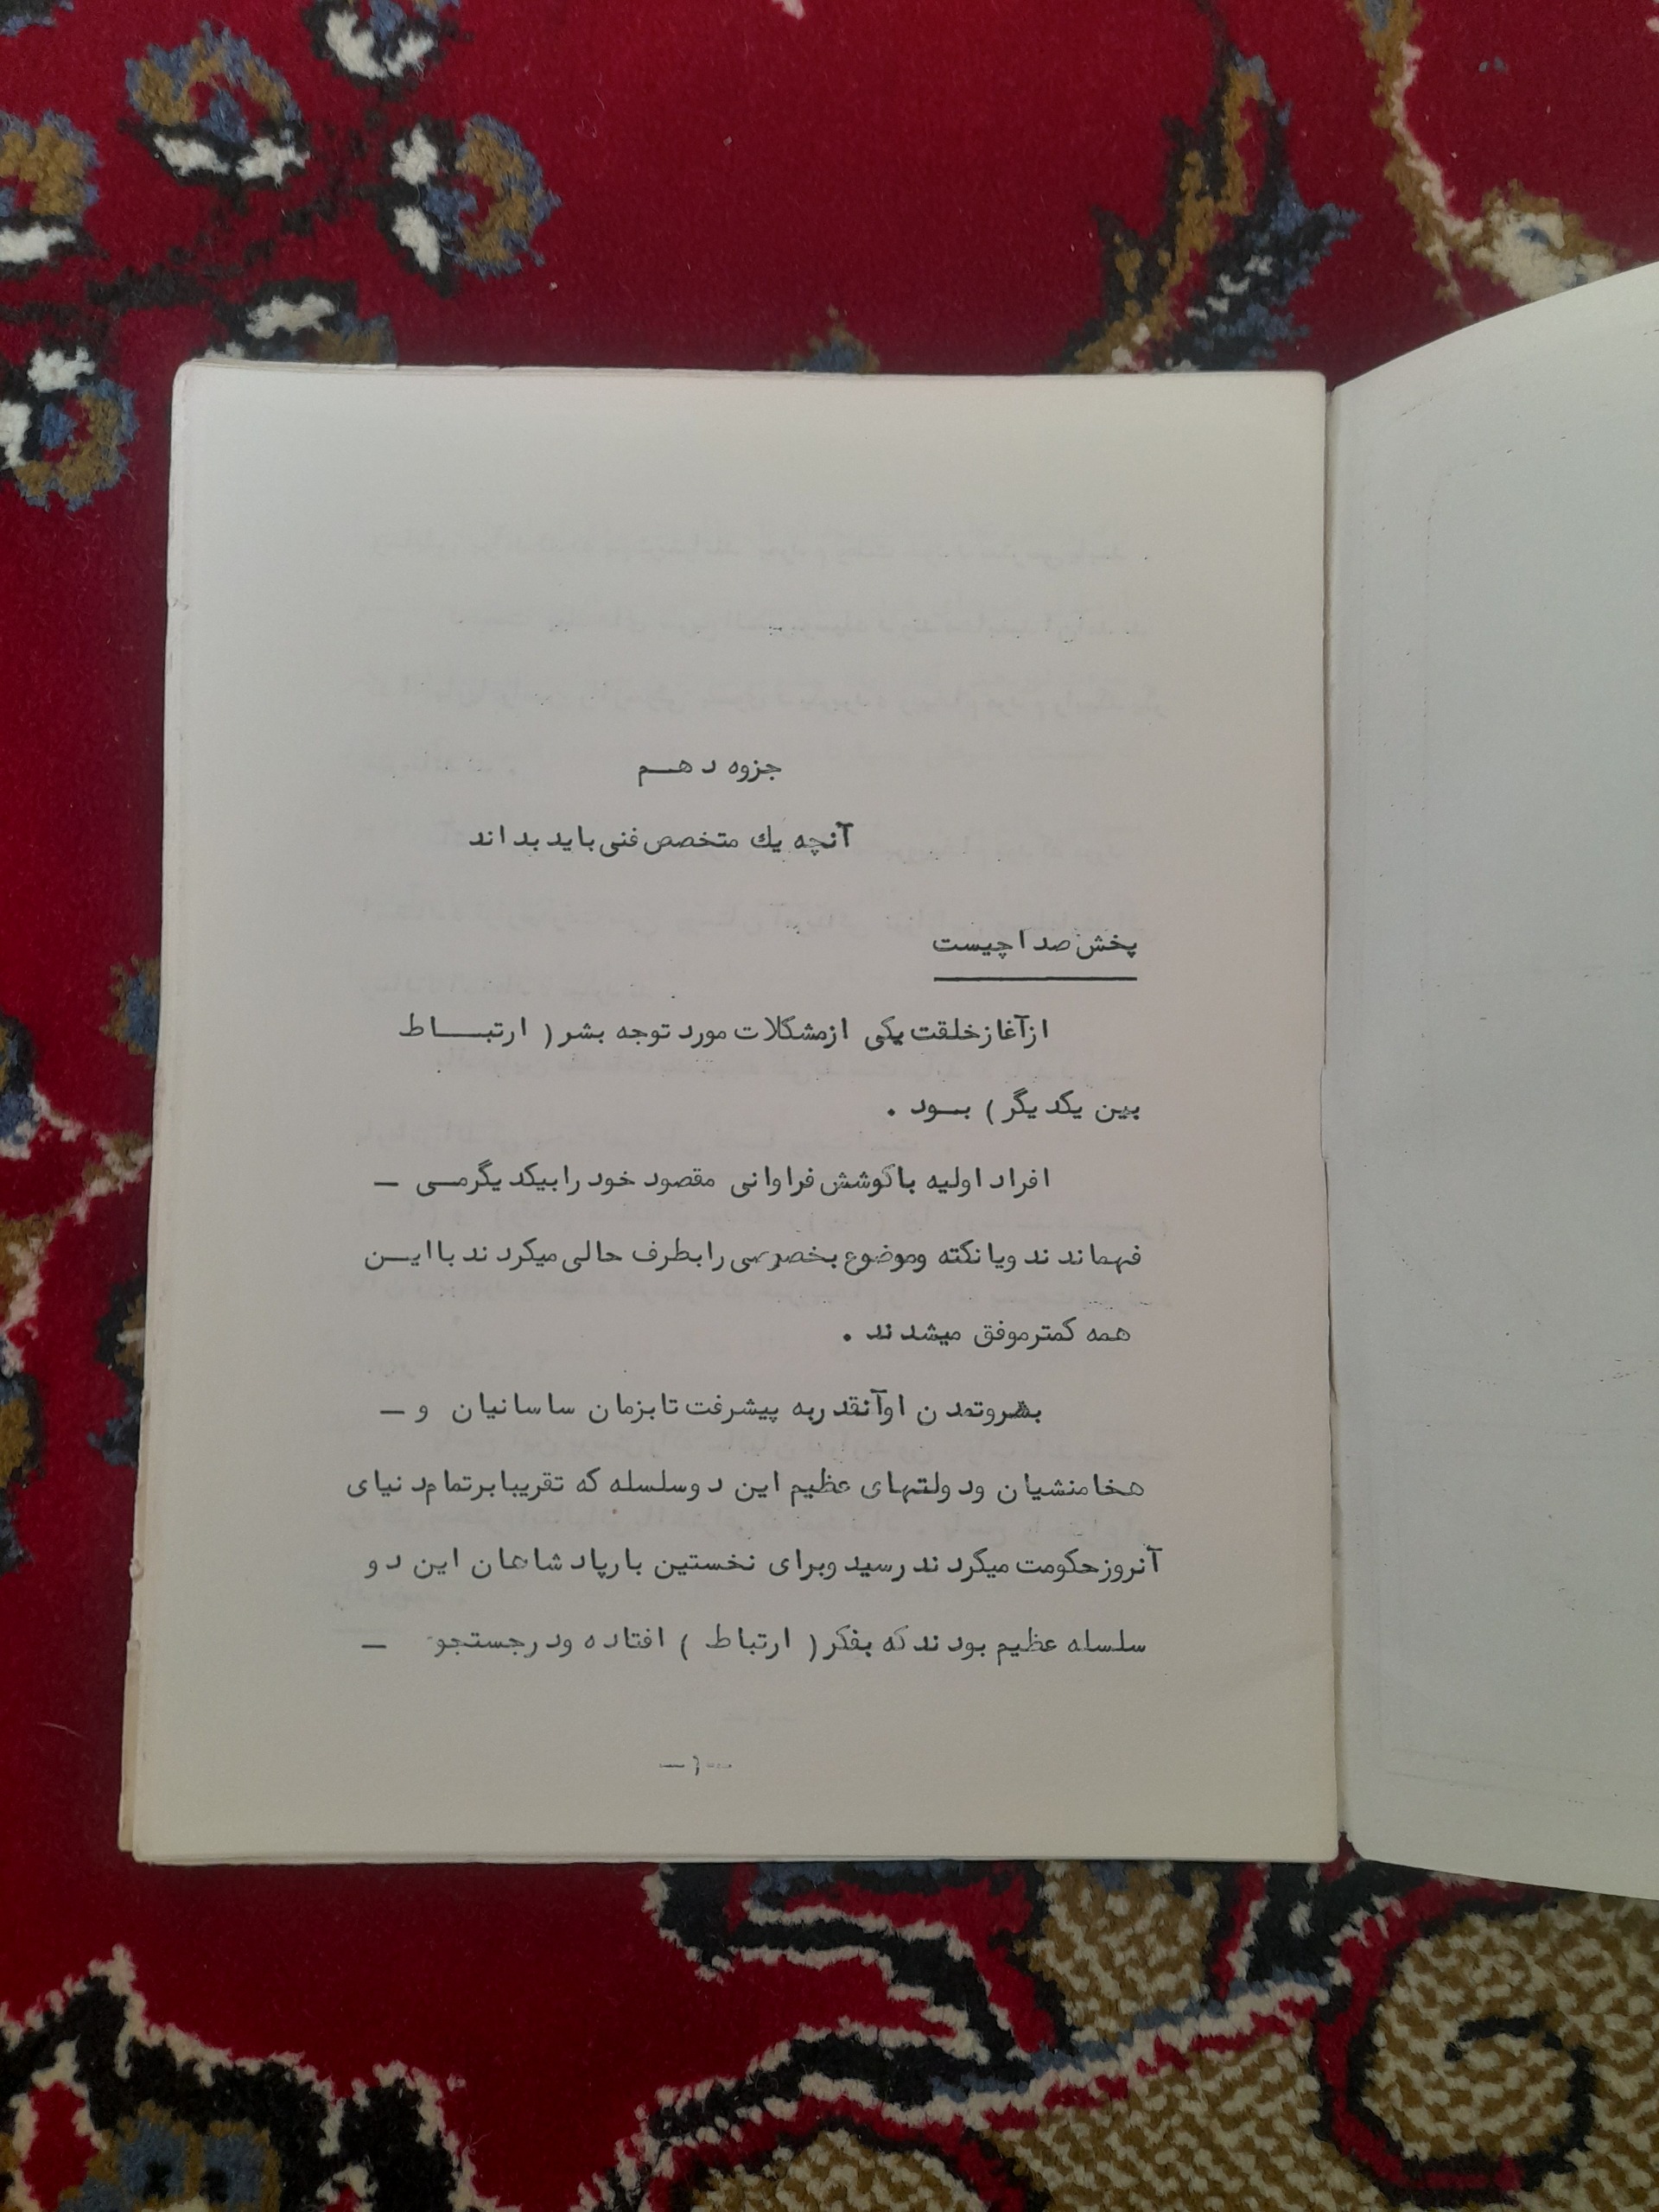 جزوه دهم
آنچه یك متخصص فنی باید بداند
پخش صدا چیست
از آغاز خلقت یکی از مشکلات مورد توجه بشر ( ارتبــاط
بین یکدیگر ) بــود .
افراد اولیه با کوشش فراوانی مقصود خود را بیکدیگر مــی —
فهماندند و یا نکته و موضوع بخصوصی را بطرف حالی میکردند با ایــن
همه کمتر موفق میشدند .
بشر و تمدن او آنقدر به پیشرفت تا بزمان ساسانیان و —
هخامنشیان و دولتهای عظیم این دو سلسله که تقریبا بر تمام دنیای
آنروز حکومت میکردند رسید و برای نخستین بار پادشاهان این دو
سلسله عظیم بودند که بفکر ( ارتباط ) افتاده و در جستجو —
— ۱ —